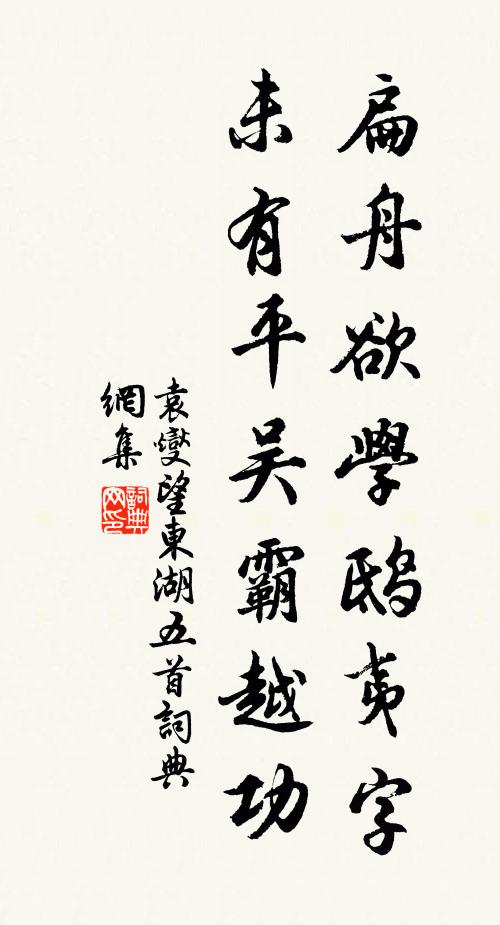 扁舟欲學鴟夷字
未有平吳霸越功
袁燮望東湖五首詞典
網集
詞典
网印